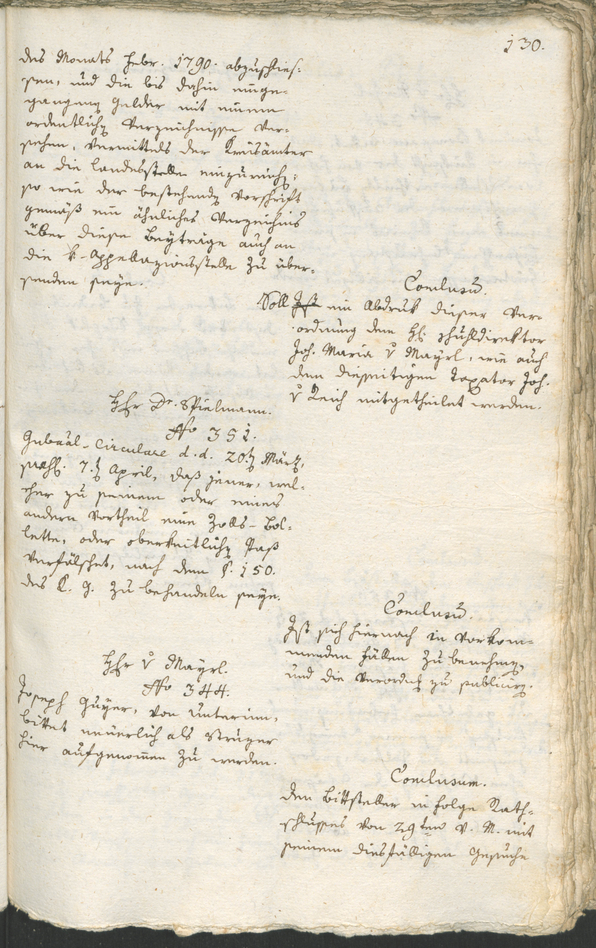 130.
des Monats Febr. 1790. abzuschlies-
sen, und die bis dahin einge-
gangenen Gelder mit einem
ordentlichen Verzeichnisse ver-
sehen, vermittels der Kreisämter
an die Landesstellen einzureichen,
so wie der bestehenden Vorschrift
gemäß ein ähnliches Verzeichnis
über diese Beyträge auch an
die k. Appellazionsstelle zu über-
senden seye.
Conclusum.
Soll ein Abdruk dieser Ver-
ordnung dem H. Schuldirektor
Joh. Maria v Mayrl, wie auch
dem diesseitigen Taxator Joh.
v Zeich mitgetheilet werden.
Hhr Dr. Spielmann.
No 351.
Gubernal-Circulare d. d. 20ten März,
7ten April, daß jener, wel-
cher zu seinem oder eines
andern Vortheil eine Zolls-Bol-
lette, oder obrikeitlichen Paß
verfälschet, nach dem §. 150.
des zu behandeln seye.
Conclusum.
Ist sich hiernach in vorkom-
menden Fällen zu benehmen,
und die Verordng zu publiciren.
Hhr v Mayrl.
No 344.
Joseph von Unterinn,
bittet neuerlich als
hier aufgenommen zu werden.
Conclusum.
Den Bittsteller in folge Rath-
schlusses von 29ten v. M. mit
seinem diesfälligen Gesuche